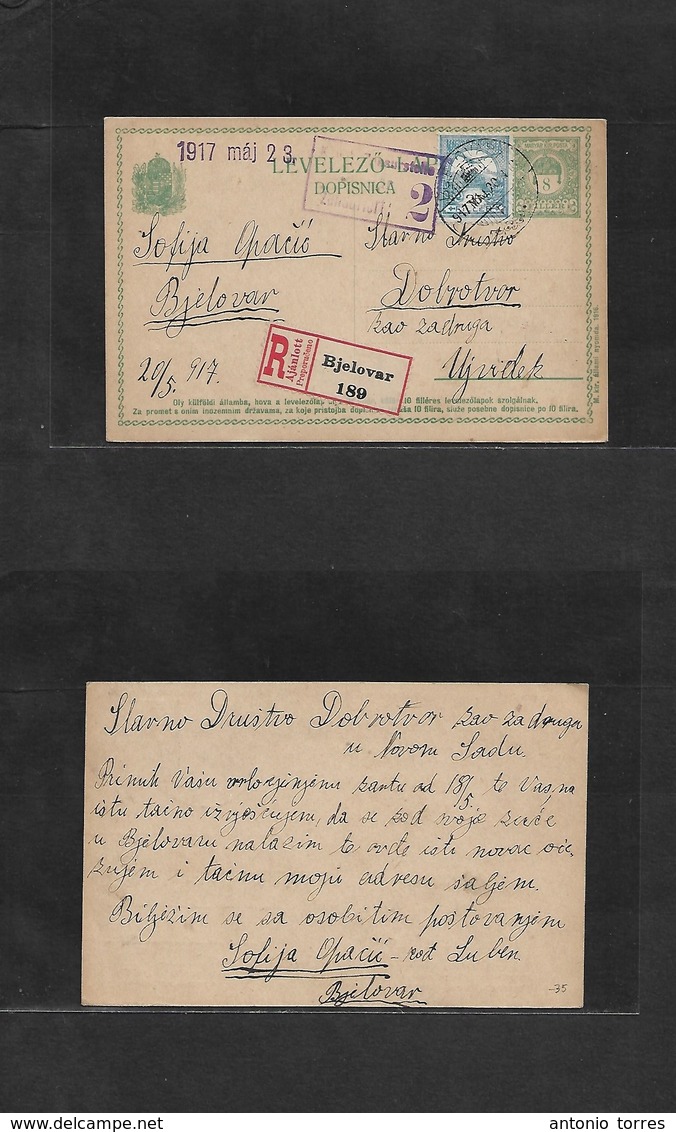 1917 máj 23.
LEVELEZŐ-LAP
DOPISNICA
2
8
Sofija Opačić
Bjelovar
20/5. 917.
Slavno Društvo
Dobrotvor
kao zadruga
Ujvidek
R
Ajánlott
Preporučeno
Bjelovar
189
Oly külföldi államba, hova a levelezőlap 10 filléres levelezőlapok szolgálnak.
Za promet s onim inozemnim državama, za koje pristojba dopisnica filira, služe posebne dopisnice po 10 filira.
M. kir. állami nyomda. 1916.
Slavno Društvo Dobrotvor kao zadruga
u Novom Sadu.
Primih Vašu kartu od 18/5. te Vas na
istu tačno izvješćujem, da se kod svoje kuće
u Bjelovaru nalazim te ovđe isti novac oče-
kujem i tačnu moju adresu šaljem.
Bilježim se sa osobitim poštovanjem
Sofija Opačić - rođ Luben
Bjelovar
-35
delcampe.net
antonio torres